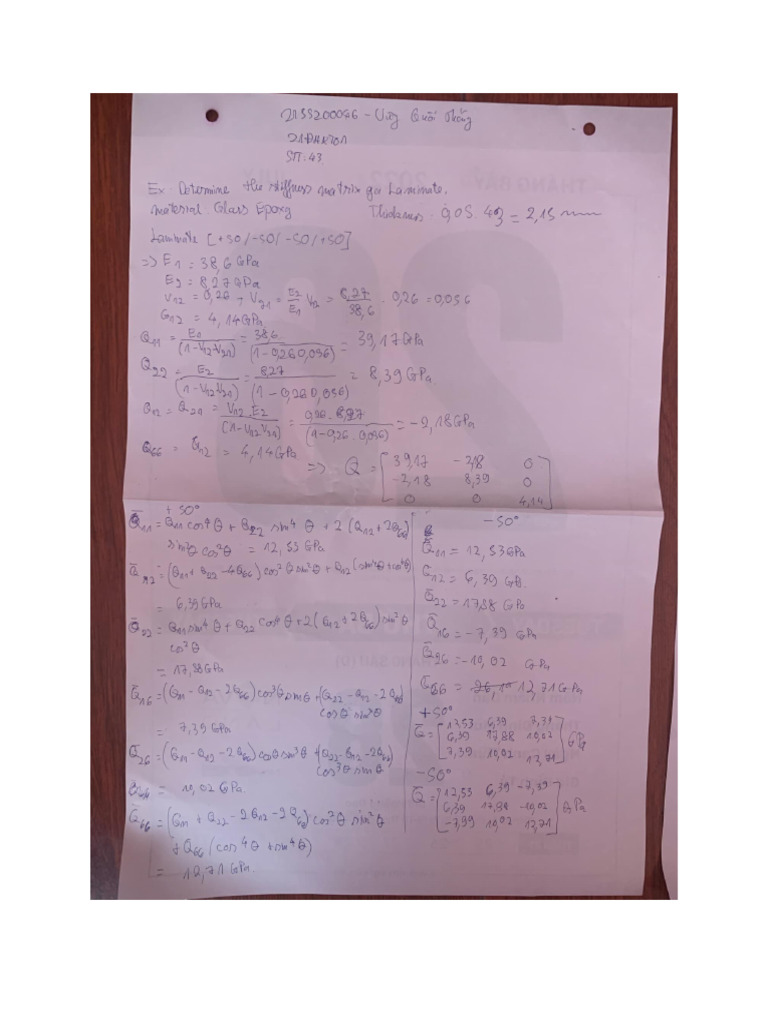 2135200066 - Quối
STT: 43
Ex: Determine the stiffness matrix go Laminate.
material: Glass Epoxy Thickness: 0,05. 43 = 2,15 mm
Laminate [+50/-50/-50/+50]
=> E1 = 38,6 GPa
E2 = 8,27 GPa
V12 = 0,26 , V21 = E2/E1 V12 = 8,27/38,6 . 0,26 = 0,056
G12 = 4,14 GPa
Q11 = E1/(1-V12.V21) = 38,6/(1-0,26.0,056) = 39,17 GPa
Q22 = E2/(1-V12.V21) = 8,27/(1-0,26.0,056) = 8,39 GPa.
Q12 = Q21 = V12.E2/(1-V12.V21) = 0,26.8,27/(1-0,26.0,056) = -2,18 GPa
Q66 = G12 = 4,14 GPa
=> Q = [39,17 -2,18 0
-2,18 8,39 0
0 0 4,14]
+50°
Q̄11 = Q11 cos⁴θ + Q22 sin⁴θ + 2(Q12 + 2Q66)
sin²θ cos²θ = 12,53 GPa
Q̄12 = (Q11 + Q22 - 4Q66) cos²θ sin²θ + Q12 (sin⁴θ + cos⁴θ)
= 6,39 GPa
Q̄22 = Q11 sin⁴θ + Q22 cos⁴θ + 2(Q12 + 2Q66) sin²θ
cos²θ
= 17,88 GPa
Q̄16 = (Q11 - Q12 - 2Q66) cos³θ sinθ + (Q22 - Q12 - 2Q66)
cosθ sin³θ
= 7,39 GPa
Q̄26 = (Q11 - Q12 - 2Q66) cosθ sin³θ + (Q22 - Q12 - 2Q66)
cos³θ sinθ
= 10,02 GPa
Q̄66 = (Q11 + Q22 - 2Q12 - 2Q66) cos²θ sin²θ
+ Q66 (cos⁴θ + sin⁴θ)
= 12,71 GPa.
-50°
Q̄11 = 12,53 GPa
Q̄12 = 6,39 GPa
Q̄22 = 17,88 GPa
Q̄16 = -7,39 GPa
Q̄26 = -10,02 GPa
Q̄66 = 12,71 GPa
+50°
Q̄ = [12,53 6,39 7,39
6,39 17,88 10,02
7,39 10,02 12,71] GPa
-50°
Q̄ = [12,53 6,39 -7,39
6,39 17,88 -10,02
-7,39 10,02 12,71] GPa